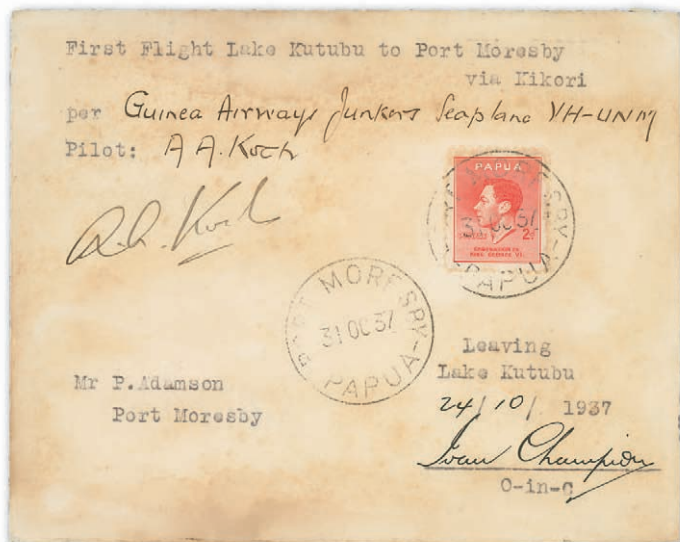 First Flight Lake Kutubu to Port Moresby
via Kikori
per Guinea Airways Junkers Seaplane VH-UNM
Pilot: A A. Koch
A.A. Koch
PAPUA
2d
CORONATION OF
KING GEORGE VI
PORT MORESBY
31 OC 37
PAPUA
PORT MORESBY
31 OC 37
PAPUA
Leaving
Lake Kutubu
24/10/ 1937
Ivan Champion
O-in-C
Mr P.Adamson
Port Moresby